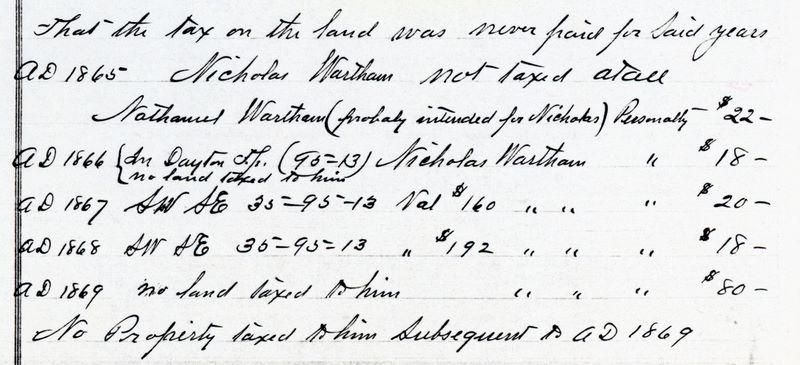 That the tax on the land was never paid for Said years
AD 1865 Nicholas Wartham not taxed atall
Nathaniel Wartham (probaly intended for Nicholas) Personalty $22-
AD 1866 { In Dayton Tp. (95=13) Nicholas Wartham " $18-
no land taxed to him
AD 1867 SW SE 35=95=13 Val $160 " " " $20-
AD 1868 SW SE 35=95=13 " $192 " " " $18-
AD 1869 no land taxed to him " " " $80-
No Property taxed to him Subsequent to AD 1869